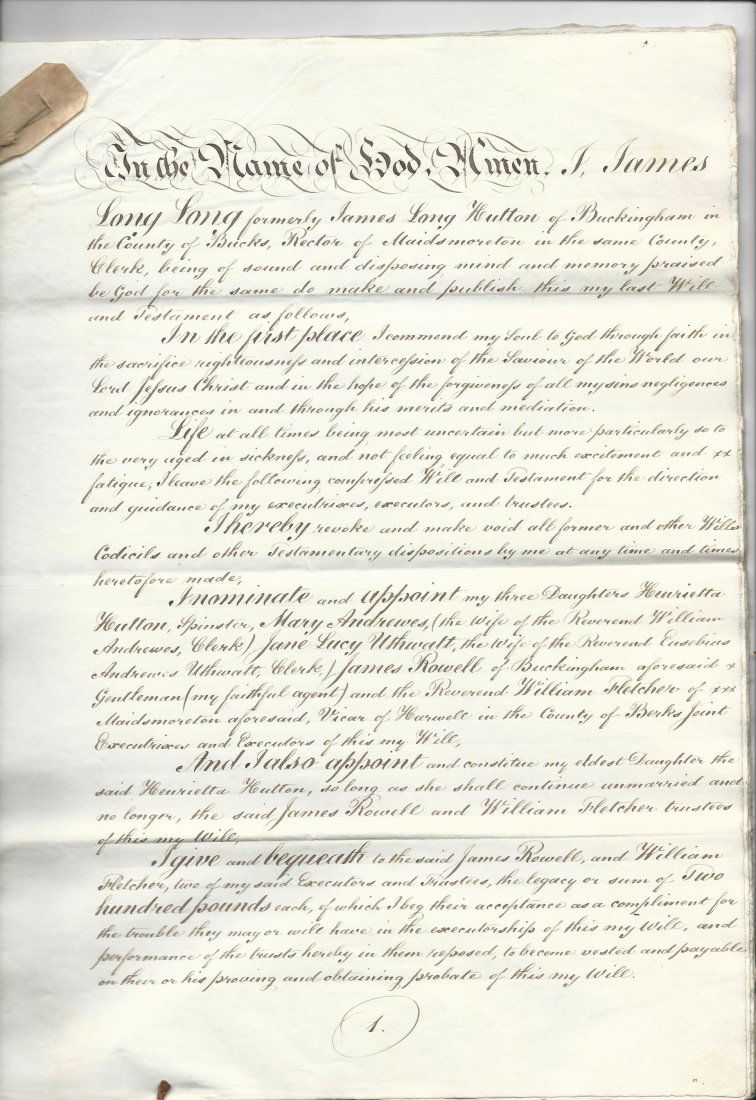 In the Name of God, Amen. I, James
Long Long formerly James Long Hutton of Buckingham in
the County of Bucks, Rector of Maidsmoreton in the same County,
Clerk, being of sound and disposing mind and memory praised
be God for the same do make and publish this my last Will
and Testament as follows,
In the first place I commend my Soul to God through faith in
the sacrifice righteousness and intercession of the Saviour of the World our
Lord Jesus Christ and in the hope of the forgiveness of all my sins negligences
and ignorances in and through his merits and mediation.
Life at all times being most uncertain but more particularly so to
the very aged in sickness, and not feeling equal to much excitement and xx
fatigue, I leave the following compressed Will and Testament for the direction
and guidance of my executrixes, executors, and trustees.
I hereby revoke and make void all former and other Wills
Codicils and other Testamentary dispositions by me at any time and times
heretofore made,
I nominate and appoint my three Daughters Henrietta
Hutton, Spinster, Mary Andrewes, (the Wife of the Reverend William
Andrewes, Clerk) Jane Lucy Uthwatt, the Wife of the Reverend Eusebius
Andrewes Uthwatt, Clerk,) James Rowell of Buckingham aforesaid x
Gentleman (my faithful agent) and the Reverend William Fletcher of xxx
Maidsmoreton aforesaid, Vicar of Harwell in the County of Berks Joint
Executrixes and Executors of this my Will,
And I also appoint and constitue my eldest Daughter the
said Henrietta Hutton, so long as she shall continue unmarried and
no longer, the said James Rowell and William Fletcher trustees
of this my Will,
I give and bequeath to the said James Rowell, and William
Fletcher, two of my said Executors and Trustees, the legacy or sum of Two
hundred pounds each, of which I beg their acceptance as a compliment for
the trouble they may or will have in the executorship of this my Will, and
performance of the trusts hereby in them reposed, to become vested and payable
on their or his proving and obtaining probate of this my Will.
1.